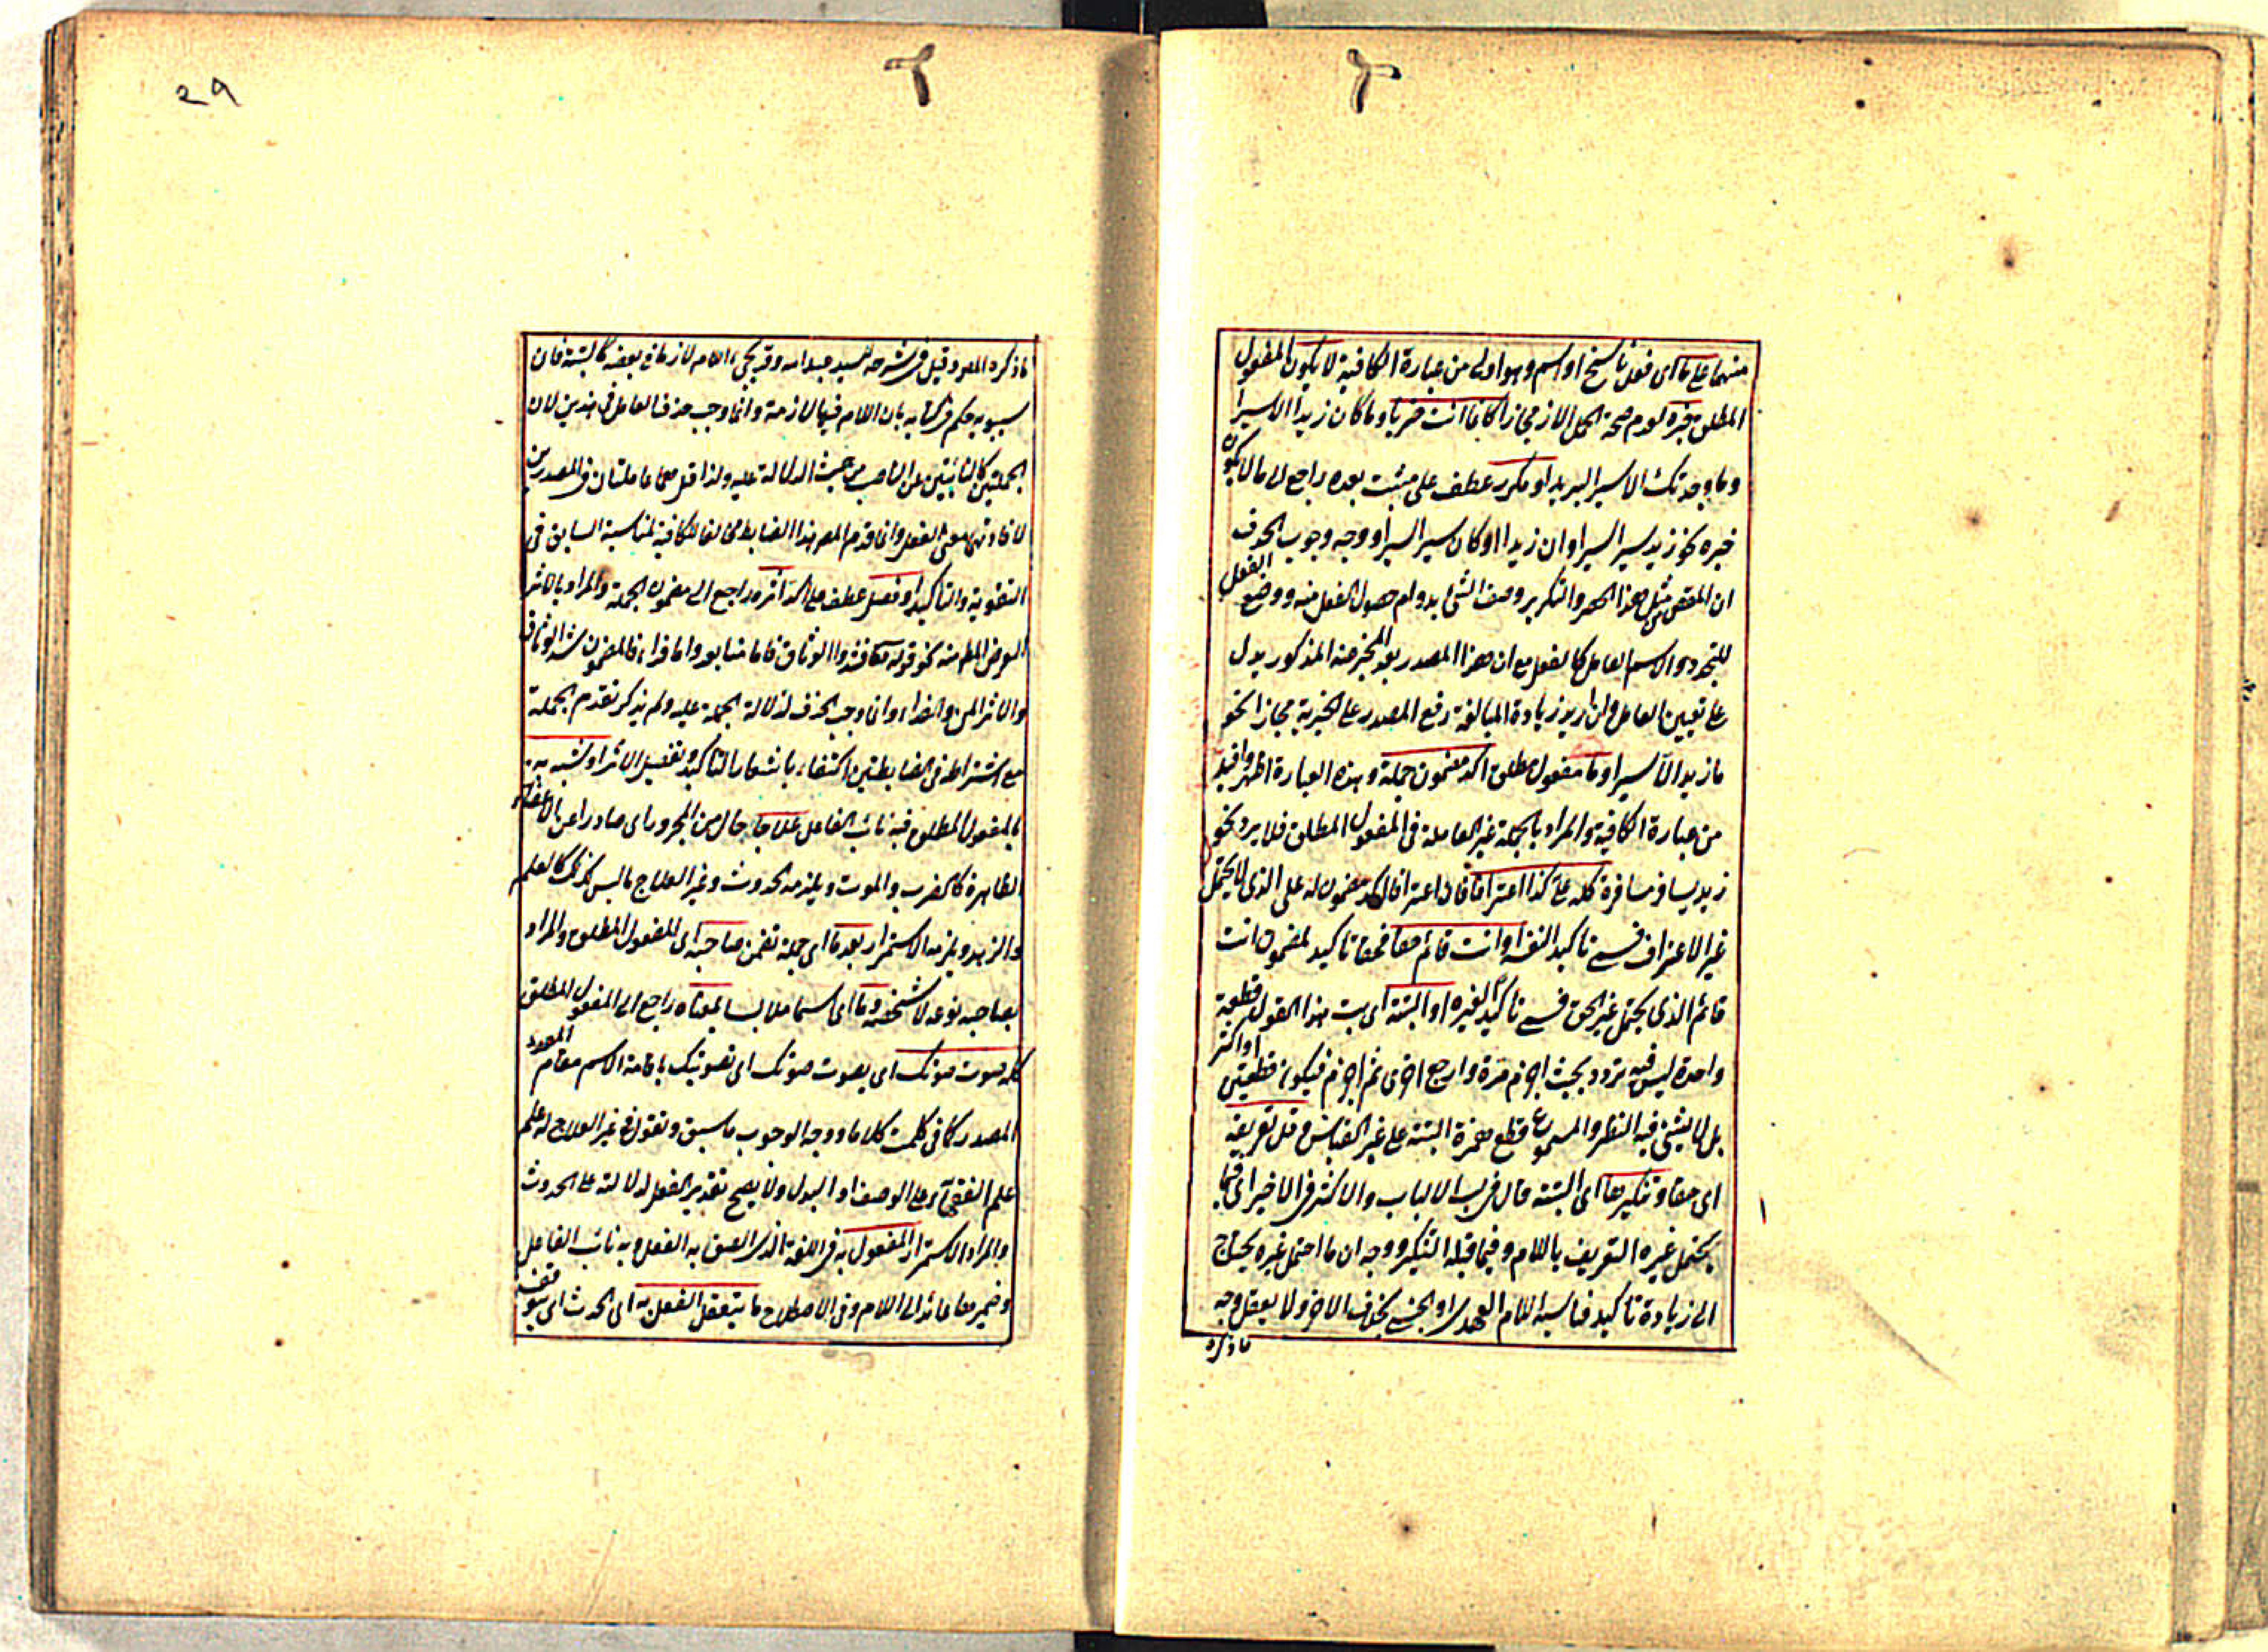 منهما على ما اى فعل ناسخ او اسم وهو اولى من عبارة الكافية لا يكون المفعول
المطلق خبره لعدم صحة الحمل الا زمجازا كما انت ضربا وما كان زيد الا سيرا
وما وجدتك الا سير البريد او مكرر عطف على مثبت بعده راجع الى ما لا يكون
خبره نحو زيد سيرا سيرا وان زيدا او كان سيرا سيرا ووجه وجوب الحذف
ان المقصود من مثل هذا الحصر والتكرير وصف الشئ بدوام حصول الفعل منه ووضع الفعل
للتجدد والاسم العامل كالفعل مع ان هذا المصدر بعد المخبر عنه المذكور يدل
على تعيين العامل وان اريد زيادة المبالغة رفع المصدر على الخبرية مجازا نحو
ما زيد الا سير او ما مفعول مطلق اكد مضمون جملة وهذه العبارة اظهر وافيد
من عبارة الكافية والمراد بالجملة غير العاملة فى المفعول المطلق فلا يرد نحو
زيد يسافر مسافرة كله على كذا اعترافا فان اعترافا اكد مضمون له على الذى لا يحتمل
غير الاعتراف فسمى تاكيدا لنفسه او انت قائم حقا فحقا تاكيد لمضمون انت
قائم الذى يحتمل غير الحق فسمى تاكيدا لغيره او البتة اى بت هذا القول قطعة
واحدة ليس فيه تردد بحيث اجزم مرة وارجع اخرى ثم اجزم فيكون قطعتين او اكثر
بل لا يثنى فيه النظر والمسموع قطع همزة البتة على غير القياس وقل تعريفه
اى حقا وتنكيرها اى البتة قال فى لب الالباب والاكثر فى الاخير اى فيما
يحتمل غيره التعريف باللام وفيما قبله التنكير ووجه ان ما احتمل غيره يحتاج
الى زيادة تاكيد فناسبه اللام العهدى او الجنسى بخلاف الاخر ولا يعقل وجه
ماذكره
29
ماذكره المص وقيل فى شرحه للسيد عبد الله وقد يجئ اللام لازما فى بعضه كالبتة فان
سيبويه حكم فى كتابه بان اللام فيها لازمة وانما وجب حذف العامل فى هذين لان
الجملتين كالنائبتين عن الناصب من حيث الدلالة عليه ولذا قيل هما عاملتان فى المصدرين
لافادتهما معنى الفعل وانما قدم المص هذا الضابط مخالفا للكافية لمناسبة السابق فى
التقوية والتاكيد او فصل عطف على اكد اثره راجع الى مضمون الجملة والمراد بالاثر
الغرض المط منه نحو قوله تعالى فشدوا الوثاق فاما منا بعد واما فداء فالمضمون شد الوثاق
والاثر المن والفداء وانما وجب الحذف لدلالة الجملة عليه ولم يذكر تقدم الجملة
مع اشتراطه فى الضابطتين اكتفاء باشعار التاكيد وتفصيل الاثر او شبه به
بالمفعول المطلق فيه نائب الفاعل علاجا حال من المجرور اى صادرا عن الاعضاء
الظاهرة كالضرب والموت ويلزمه الحدوث وغير العلاج ما ليس كذلك كالعلم
والزهد ويلزمه الاستمرار بعد ما اى جملة تضمن صاحبه اى المفعول المطلق والمراد
بصاحبه نوعه لا شخصه وما اى اسما ملابسا بمعناه راجع الى المفعول المطلق
كله صوت صوتك اى يصوت صوتك اى تصويتك باقامة الاسم مقام المصدر
المصدر كما فى كلمت كلاما ووجه الوجوب ما سبق وتقول فى غير العلاج له علم
علم الفقهاء على الوصف او البدل ولا يصح تقدير الفعل لدلالته على الحدوث
والمراد الاستمرار المفعول به فى اللغة الذى الصق به الفعل وبه نائب الفاعل
وضميره عائد الى اللام وفى الاصطلاح ما يتعقل الفعل به اى الحدث اى يتوقف